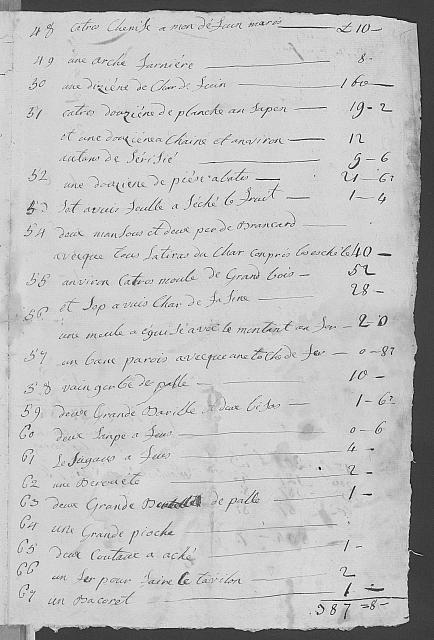 48 catres Chenise a mon dé Juin maros £ 10 -
49 une arche farniére 8 -
50 une diziéne de Char de foin 160 -
51 catres douziéne de planche an sapen 19 - 2
et une douziéne a Chaine et anviron 12
autans de Serisié 9 - 6
52 une douziene de piése abatis 21 - 6
53 set avais feulle a séché le fruit 1 - 4
54 deux mansous et deux per de Brancard
avecque tous latiras du Char conpris les eschéle 40 -
55 anviron catres moule de Grand bois - 52
et sep avais Char de fasine 28 -
56 une moule a éguisé avec le montant an fer 20
57 un banc parois avecque une toche de fer 0 - 8
58 vain gerbe de pallé 10 -
59 deux Grande Barille 1 - 6
60 deux Lanpe a feus 0 - 6
61 a feus 4 -
62 une Berouéte 2 -
63 deux Grande de palle 1 -
64 une Grande pioche
65 deux Coutaux a aché 1 -
66 un fer pour faire le tavilon 2
67 un Bacoret 1 -
387 = 8 -